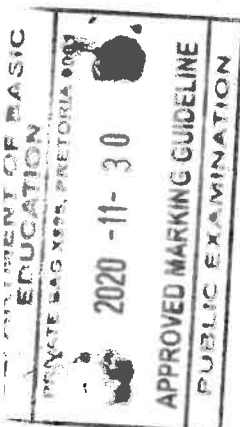 DEPARTMENT OF BASIC
EDUCATION
PRIVATE BAG X895, PRETORIA 0001
2020 -11- 30
APPROVED MARKING GUIDELINE
PUBLIC EXAMINATION